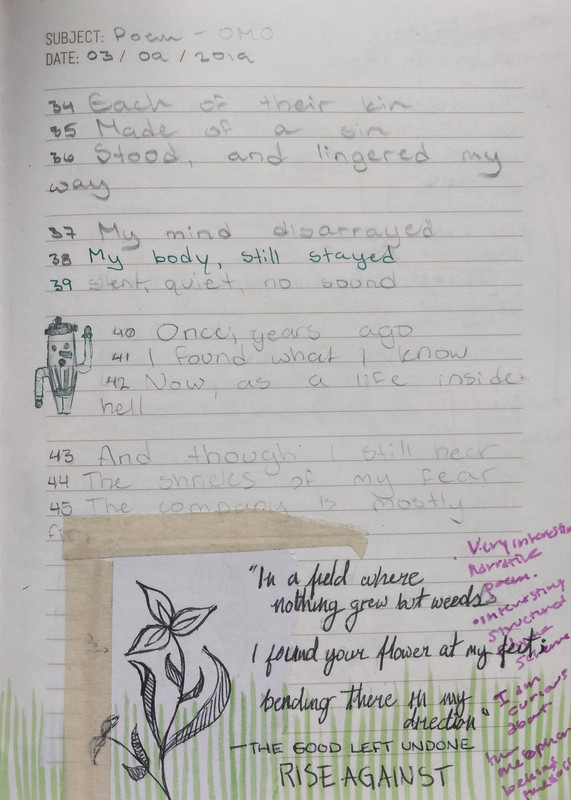 SUBJECT: Poem - OMO
DATE: 03 / 09 / 2019
34 Each of their kin
35 Made of a sin
36 Stood, and lingered my
way
37 My mind disarrayed
38 My body, still stayed
39 silent, quiet, no sound
40 Once, years ago
41 I found what I know
42 Now, as a life inside
hell
43 And though I still hear
44 The shrieks of my fear
45 The company is mostly
"In a field where
nothing grew but weeds
I found your flower at my feet;
bending there in my
direction"
—THE GOOD LEFT UNDONE
RISE AGAINST
Very interesting
narrative
poem.
•interesting
structured
scheme
I am
curious
about
the
metaphor
behind